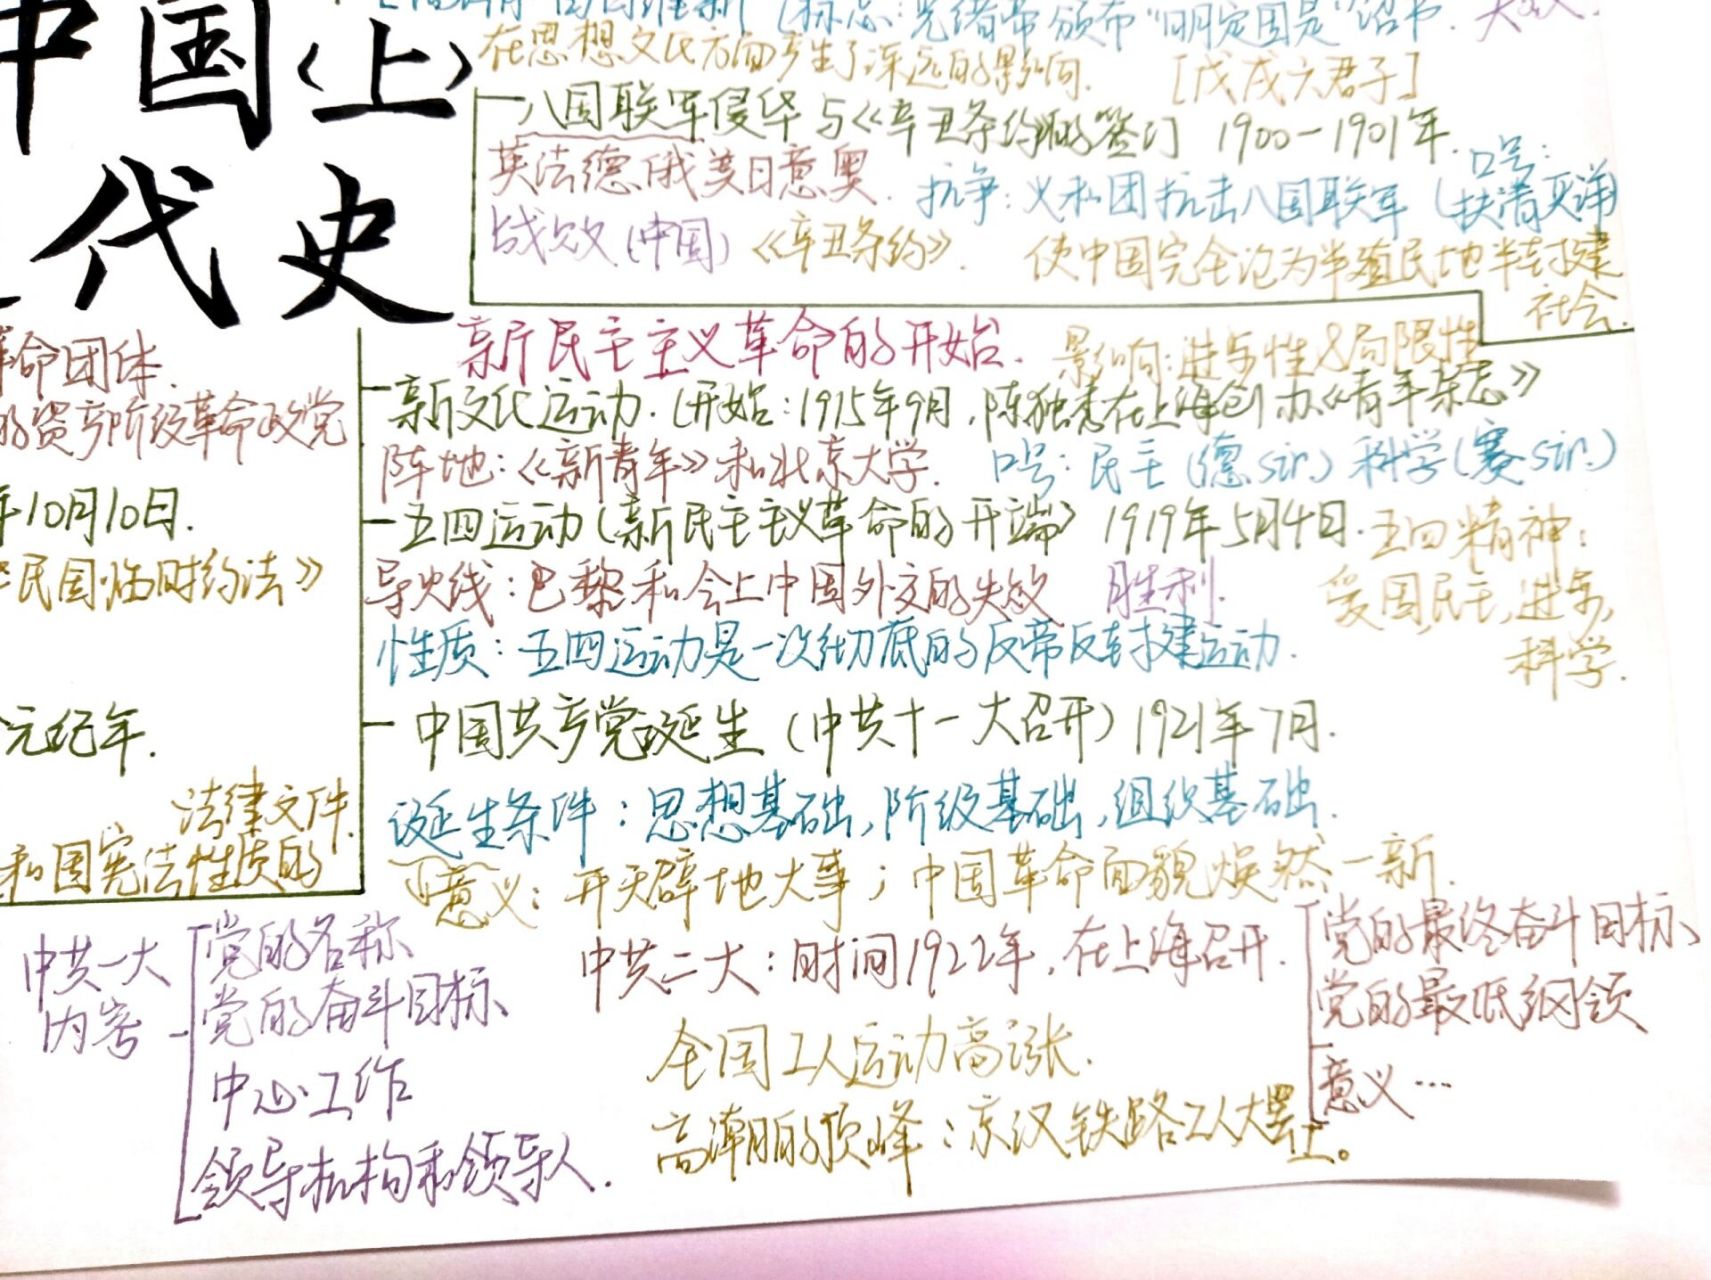 中国(上)
代史
标志:光绪帝颁布"明定国是"诏书.
在思想文化方面产生了深远的影响. [戊戌六君子]
八国联军侵华与《辛丑条约》的签订 1900-1901年.
英法德俄美日意奥. 抗争:义和团抗击八国联军(口号:扶清灭洋)
战败(中国)《辛丑条约》. 使中国完全沦为半殖民地半封建
社会.
新民主主义革命的开始. 影响:进步性&局限性
新文化运动.(开始:1915年9月,陈独秀在上海创办《青年杂志》
阵地:《新青年》和北京大学. 口号:民主(德sir.)科学(赛sir.)
五四运动(新民主主义革命的开端) 1919年5月4日.五四精神:
导火线:巴黎和会上中国外交的失败 胜利. 爱国,民主,进步,
科学.
性质:五四运动是一次彻底的反帝反封建运动.
中国共产党诞生(中共十一大召开)1921年7月.
诞生条件:思想基础,阶级基础,组织基础.
意义:开天辟地大事;中国革命面貌焕然一新.
革命团体.
的资产阶级革命政党
年10月10日.
民国临时约法》
元纪年.
法律文件.
和国宪法性质的
中共一大
内容
党的名称、
党的奋斗目标、
中心工作
领导机构和领导人.
中共二大:时间1922年,在上海召开.
党的最终奋斗目标、
党的最低纲领
意义…
全国工人运动高涨.
高潮的顶峰:京汉铁路工人大罢工。